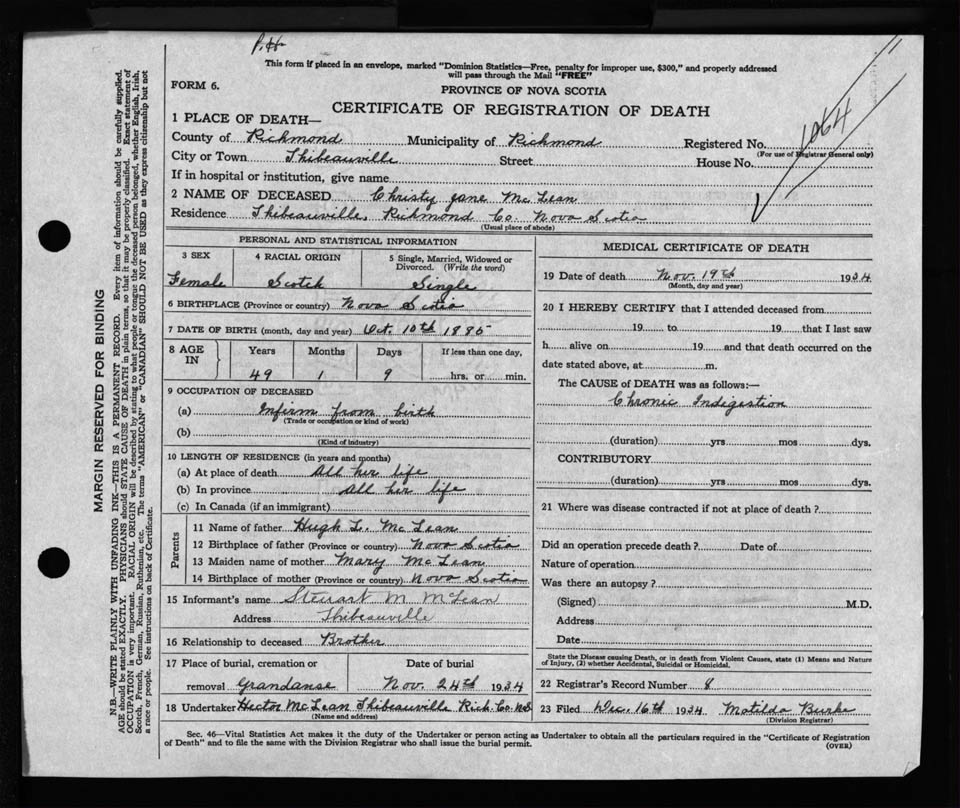 P.H.
This form if placed in an envelope, marked "Dominion Statistics—Free, penalty for improper use, $300," and properly addressed
will pass through the Mail "FREE"
FORM 6.
PROVINCE OF NOVA SCOTIA
CERTIFICATE OF REGISTRATION OF DEATH
1064
1 PLACE OF DEATH—
County of Richmond Municipality of Richmond Registered No.
(For use of Registrar General only)
City or Town Thibeauville Street House No.
If in hospital or institution, give name
2 NAME OF DECEASED Christy Jane McLean
Residence Thibeauville, Richmond Co. Nova Scotia
(Usual place of abode)
PERSONAL AND STATISTICAL INFORMATION
3 SEX 4 RACIAL ORIGIN 5 Single, Married, Widowed or
Divorced. (Write the word)
Female Scotch Single
6 BIRTHPLACE (Province or country) Nova Scotia
7 DATE OF BIRTH (month, day and year) Oct. 10th 1885
8 AGE IN Years Months Days If less than one day,
49 1 9 hrs. or min.
9 OCCUPATION OF DECEASED
(a) Infirm from birth
(Trade or occupation or kind of work)
(b)
(Kind of industry)
10 LENGTH OF RESIDENCE (in years and months)
(a) At place of death All her life
(b) In province All her life
(c) In Canada (if an immigrant)
Parents
11 Name of father Hugh L. McLean
12 Birthplace of father (Province or country) Nova Scotia
13 Maiden name of mother Mary McLean
14 Birthplace of mother (Province or country) Nova Scotia
15 Informant's name Steuart M McLean
Address Thibeauville
16 Relationship to deceased Brother
17 Place of burial, cremation or Date of burial
removal Grandanse Nov. 24th 1934
18 Undertaker Hector McLean Thibeauville Rich. Co. N.S
(Name and address)
MEDICAL CERTIFICATE OF DEATH
19 Date of death Nov. 19th 1934
(Month, day and year)
20 I HEREBY CERTIFY that I attended deceased from
19 to 19 that I last saw
h alive on 19 and that death occurred on the
date stated above, at m.
The CAUSE of DEATH was as follows:—
Chronic Indigestion
(duration) yrs mos dys.
CONTRIBUTORY
(duration) yrs mos dys.
21 Where was disease contracted if not at place of death?
Did an operation precede death? Date of
Nature of operation
Was there an autopsy?
(Signed) M.D.
Address
Date
State the Disease causing Death, or in death from Violent Causes, state (1) Means and Nature
of Injury, (2) whether Accidental, Suicidal or Homicidal.
22 Registrar's Record Number 8
23 Filed Dec. 16th 1934 Matilda Burke
(Division Registrar)
Sec. 46—Vital Statistics Act makes it the duty of the Undertaker or person acting as Undertaker to obtain all the particulars required in the "Certificate of Registration
of Death" and to file the same with the Division Registrar who shall issue the burial permit.
(OVER)
MARGIN RESERVED FOR BINDING
N.B.—WRITE PLAINLY WITH UNFADING INK—THIS IS A PERMANENT RECORD. Every item of information should be carefully supplied.
AGE should be stated EXACTLY. PHYSICIANS should STATE CAUSE OF DEATH in plain terms, so that it may be properly classified. Exact statement of
OCCUPATION is very important. RACIAL ORIGIN will be described by stating to what people or tongue the deceased person belonged, whether English, Irish,
Scotch, French, German, Russian, Ruthenian, etc. The terms "AMERICAN" or "CANADIAN" SHOULD NOT BE USED as they express citizenship but not
a race or people. See instructions on back of Certificate.